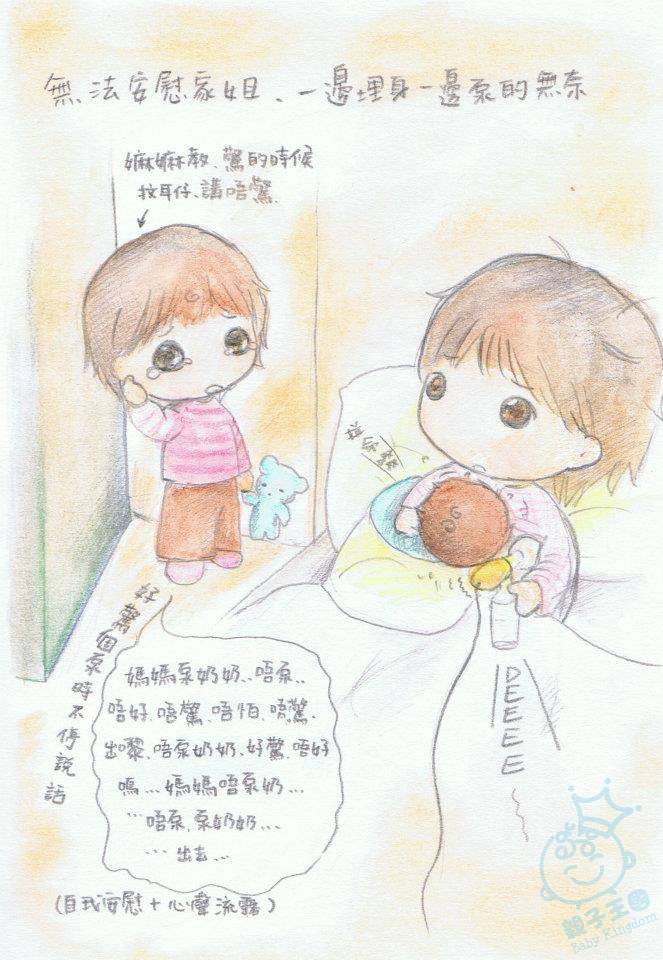 無法安慰家姐、一邊埋身一邊泵的無奈
嫲嫲教、驚的時候
拉耳仔、講唔驚
好驚個泵時不停說話
媽媽泵奶奶..唔泵..
唔好、唔驚、唔怕、唔驚、
出嚟、唔泵奶奶、好驚、唔好
嗚...媽媽唔泵奶...
...唔泵、泵奶奶...
...出去...
(自我安慰+心聲流露)
DEEEEE
親子王國
Baby Kingdom